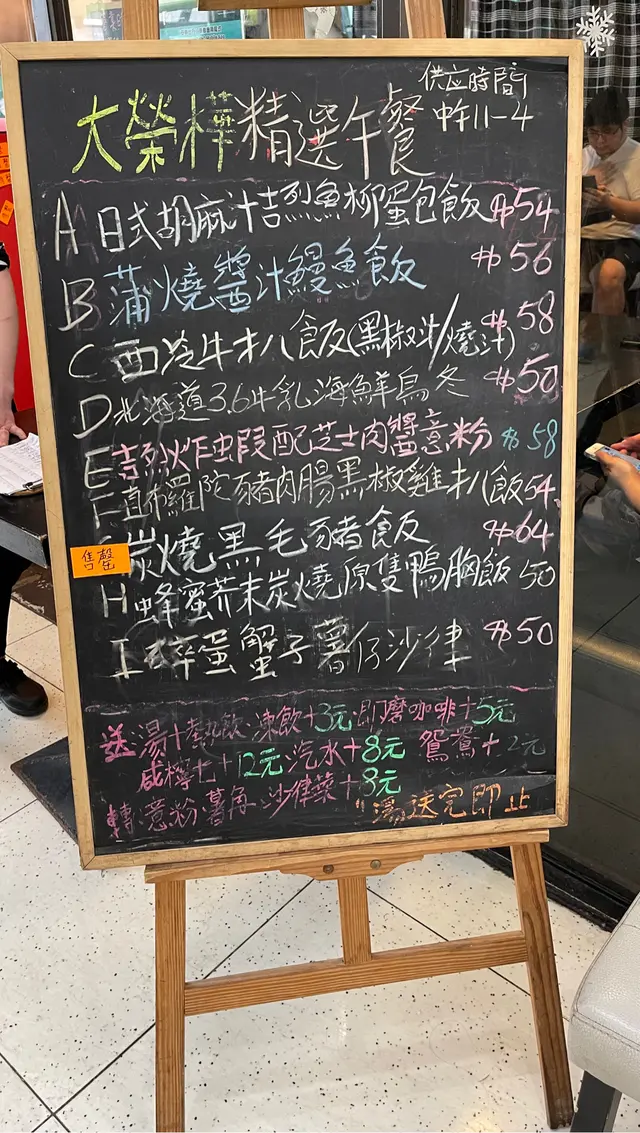 供应時間
大榮樺精選午餐 中午11-4
A 日式胡麻汁吉烈魚柳蛋包飯 $54
B 蒲燒醬汁鰻魚飯 $56
C 西冷牛扒飯(黑椒汁/燒汁) $58
D 北海道3.6牛乳海鮮烏冬 $50
E 吉烈炸虫叚配芝士肉醬意粉 $58
F 直布羅陀豬肉腸黑椒雞扒飯 54
售罄 炭燒黑毛豬飯 $64
H 蜂蜜芥末炭燒原隻鴨胸飯 50
I 碎蛋蟹子薯仔沙律 $50
送湯+熱飲 凍飲+3元 即磨咖啡+5元
咸檸七+12元 汽水+8元 鴛鴦+2元
轉意粉薯角 沙律菜+8元
湯送完即止